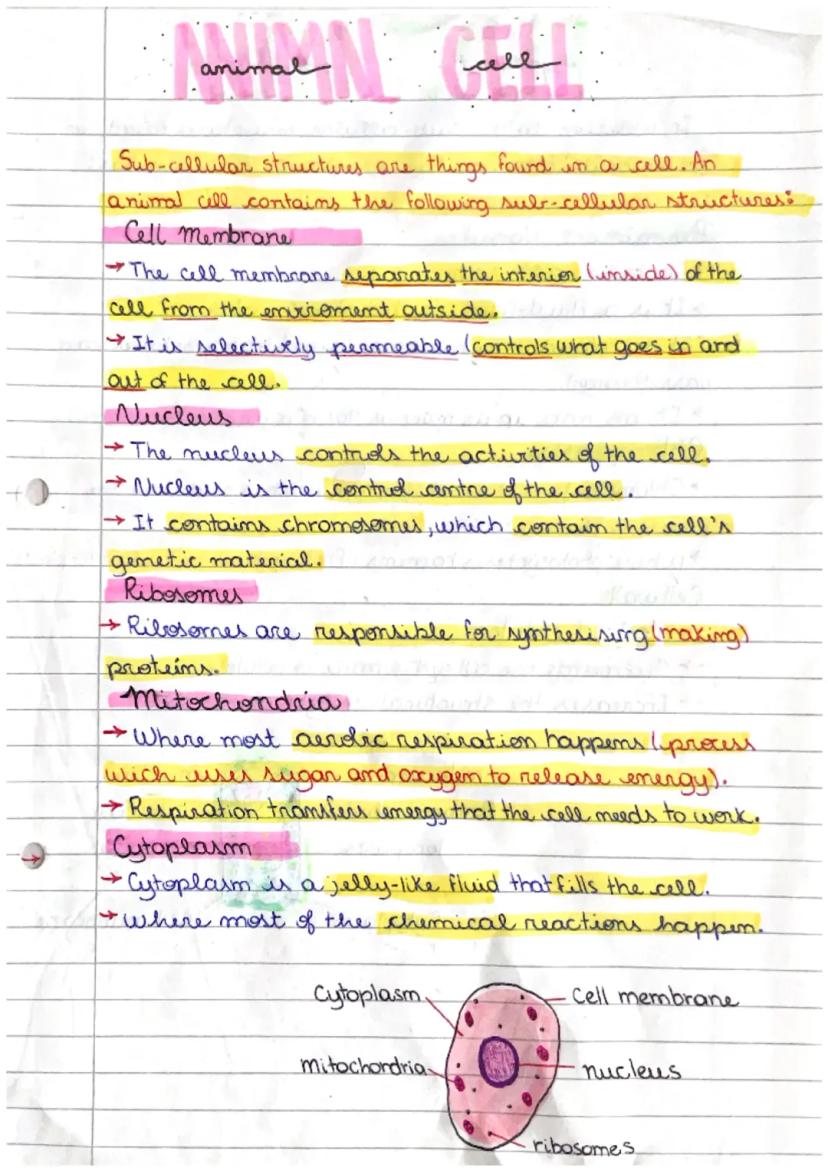 ANIMAL CELL
animal cell
Sub-cellular structures are things found in a cell. An
animal cell contains the following sub-cellular structures:
Cell Membrane
→ The cell membrane separates the interior (inside) of the
cell from the enviroment outside.
→ It is selectively permeable (controls what goes in and
out of the cell.
Nucleus
→ The nucleus controls the activities of the cell.
→ Nucleus is the control centre of the cell.
→ It contains chromosomes, which contain the cell's
genetic material.
Ribosomes
→ Ribosomes are responsible for synthesising (making)
proteins.
Mitochondria
→ Where most aerobic respiration happens (process
wich uses sugar and oxygen to release energy).
→ Respiration transfers energy that the cell needs to work.
Cytoplasm
→ Cytoplasm is a jelly-like fluid that fills the cell.
→ Where most of the chemical reactions happen.
Cytoplasm
Cell membrane
mitochondria
nucleus
ribosomes